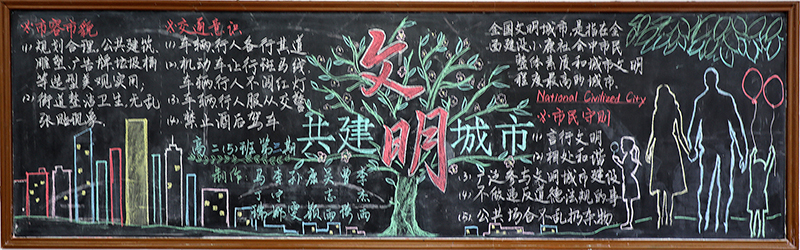 ※市容市貌
(1) 规划合理,公共建筑,
雕塑,广告牌,垃圾桶
等造型美观实用;
(2) 街道整洁卫生,无乱
张贴现象.
※交通意识
(1) 车辆行人各行其道
(2) 机动车让行斑马线
车辆行人不闯红灯
(3) 车辆行人服从交警
(4) 禁止酒后驾车
高二(5)班第三期
制作:
共建文明城市
全国文明城市,是指在全
面建设小康社会中市民
整体素质和城市文明
程度最高的城市.
National Civilized City
※市民守则
(1) 言行文明
(2) 相处和谐
(3) 广泛参与文明城市建设
(4) 不做违反道德法规的事
(5) 公共场合不乱扔杂物